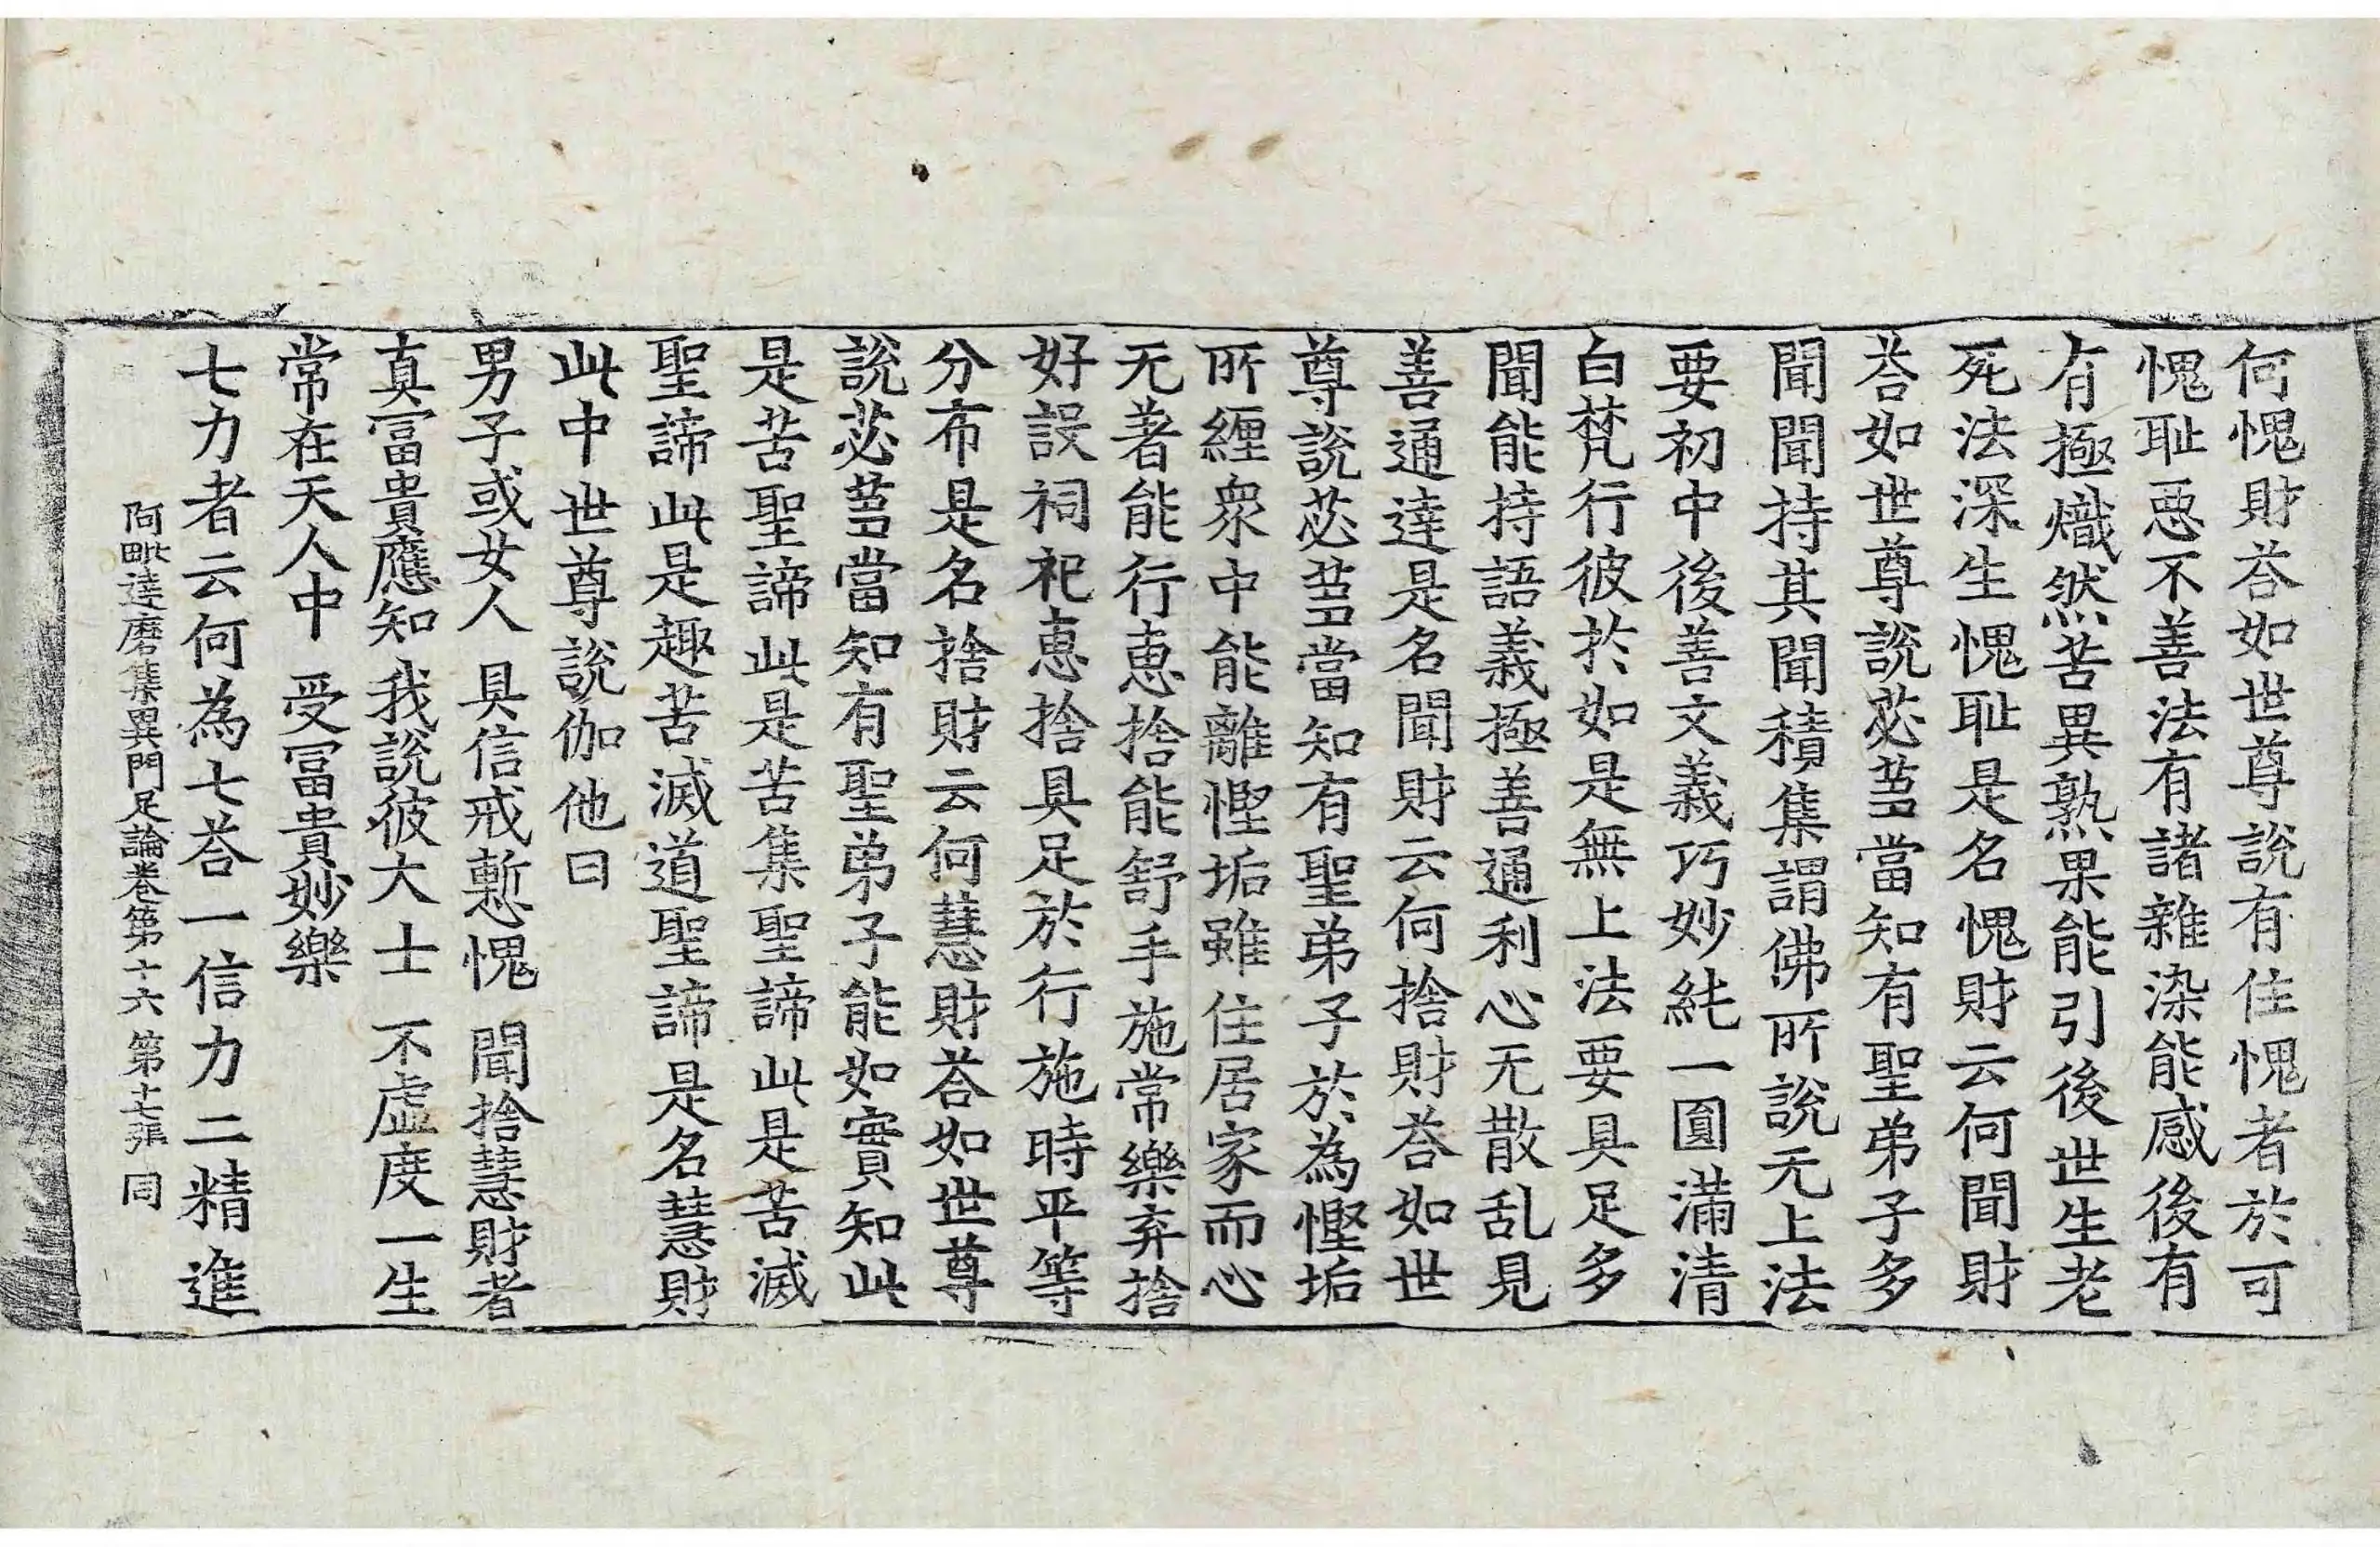 何愧財荅如世尊說有住愧者於可
愧耻惡不善法有諸雜染能感後有
有極熾然苦異熟果能引後世生老
死法深生愧耻是名愧財云何聞財
荅如世尊說苾蒭當知有聖弟子多
聞聞持其聞積集謂佛所說无上法
要初中後善文義巧妙純一圓滿清
白梵行彼於如是無上法要具足多
聞能持語義極善通利心无散乱見
善通達是名聞財云何捨財荅如世
尊說苾蒭當知有聖弟子於為慳垢
所纏衆中能離慳垢雖住居家而心
无著能行惠捨能舒手施常樂弃捨
好設祠祀惠捨具足於行施時平等
分布是名捨財云何慧財荅如世尊
說苾蒭當知有聖弟子能如實知此
是苦聖諦此是苦集聖諦此是苦滅
聖諦此是趣苦滅道聖諦是名慧財
此中世尊說伽他曰
男子或女人 具信戒慙愧 聞捨慧財者
真冨貴應知 我說彼大士 不虛度一生
常在天人中 受冨貴妙樂
七力者云何為七荅一信力二精進
阿毗達磨集異門足論卷第十六 第十七張 同